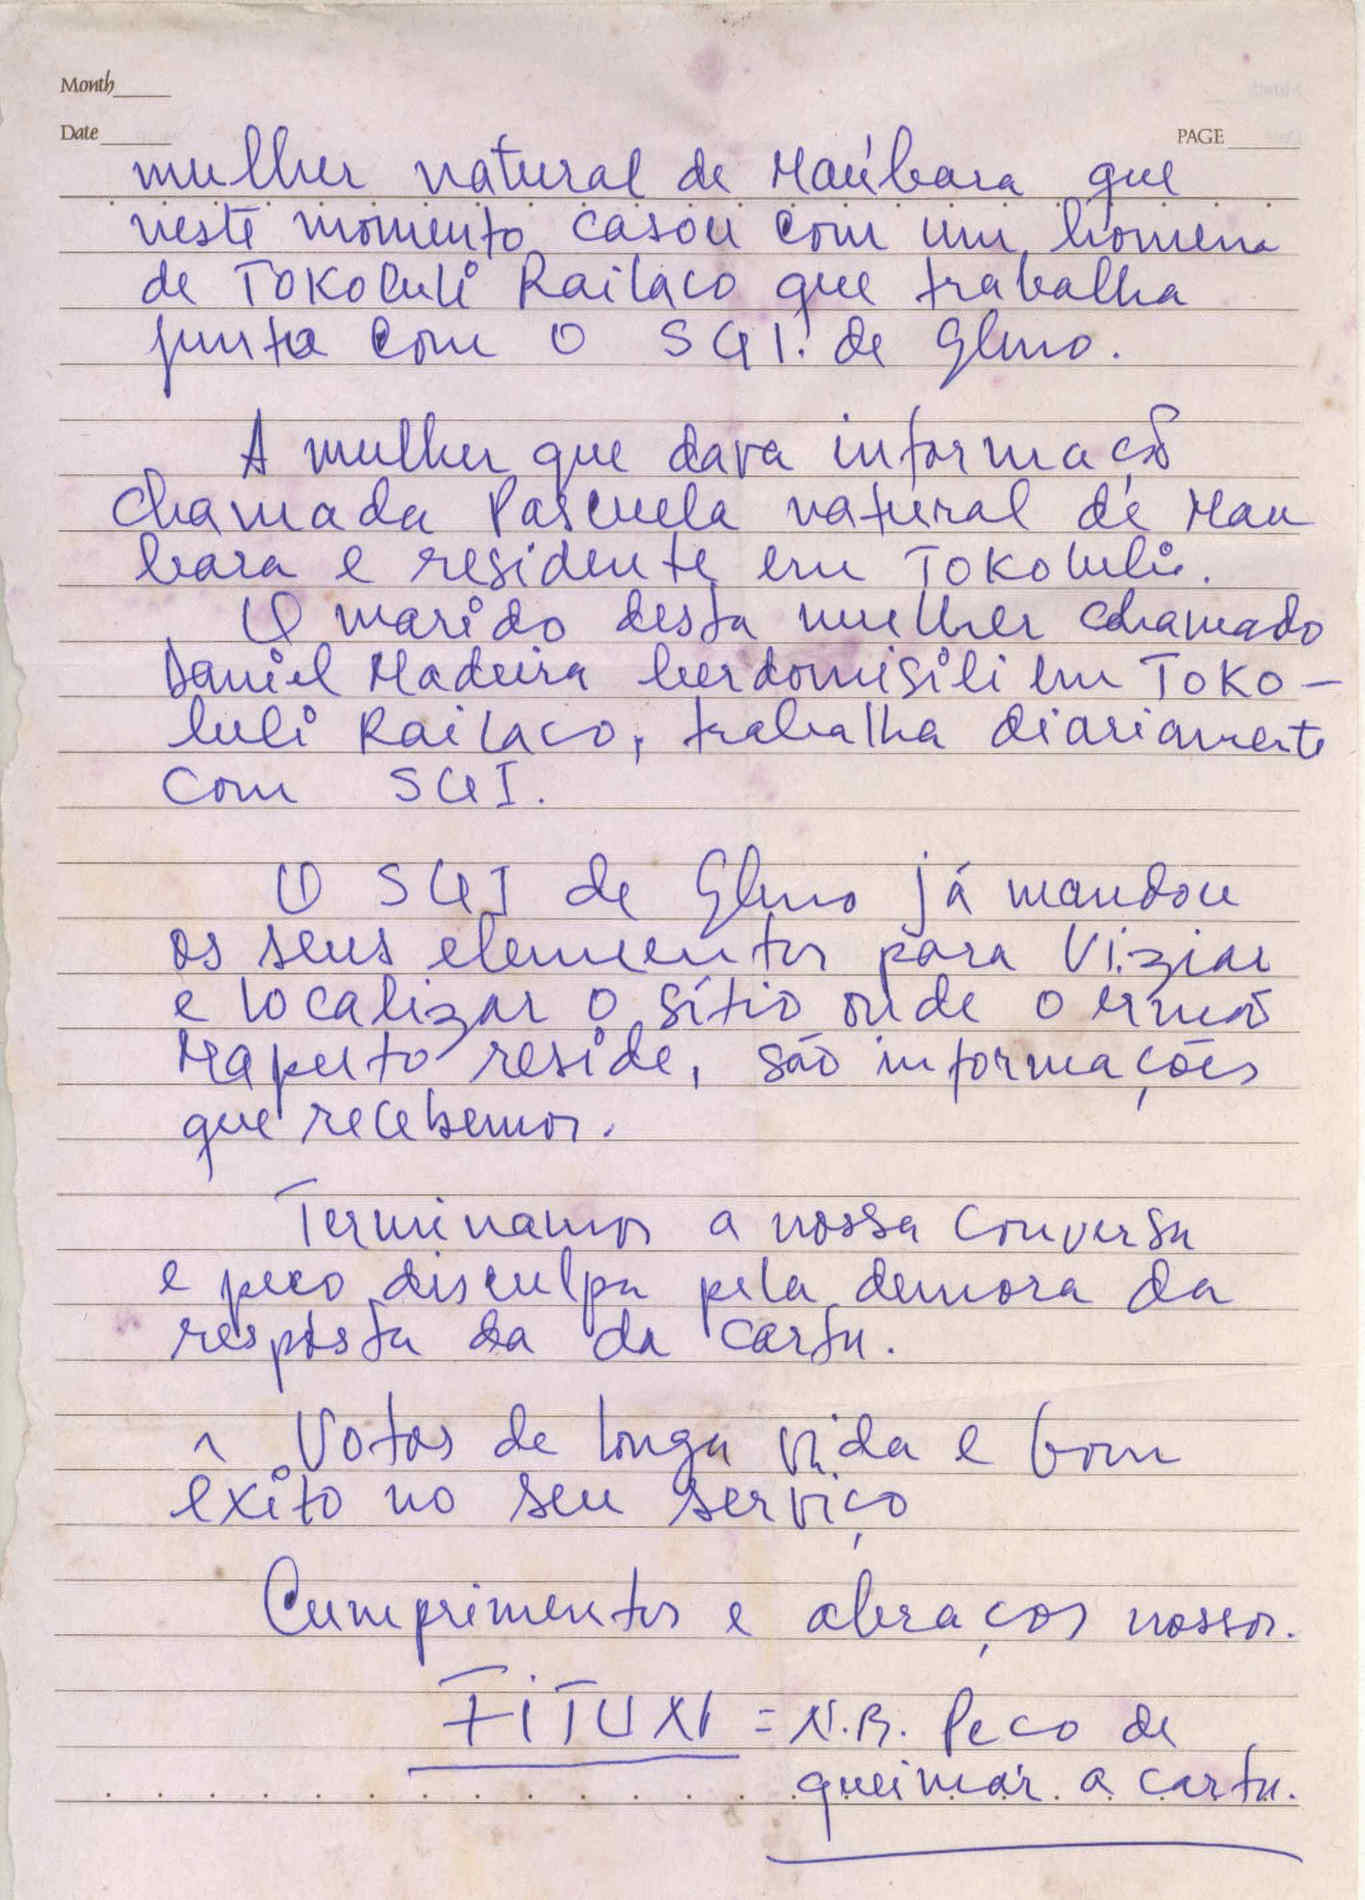 Month
Date
PAGE
mulher natural de Maúbara que
neste momento casou com um homem
de Tokoluli Railaco que trabalha
junto com o SGI. de Gleno.
A mulher que dava informação
chamada Pascuela natural de Mau
bara e residente em Tokoluli.
O marido desta mulher chamado
Daniel Madeira berdomisili em Toko-
luli Railaco, trabalha diariamente
com SGI.
O SGI de Gleno já mandou
os seus elementos para Viziar
e localizar o sítio onde o irmão
reside, são informações
que recebemos.
Terminamos a nossa conversa
e peco disculpa pela demora da
resposta da da carta.
Votos de longa vida e bom
êxito no seu serviço
Cumprimentos e abraços nossos.
FITUXI = N.B. Peco de
queimar a carta.